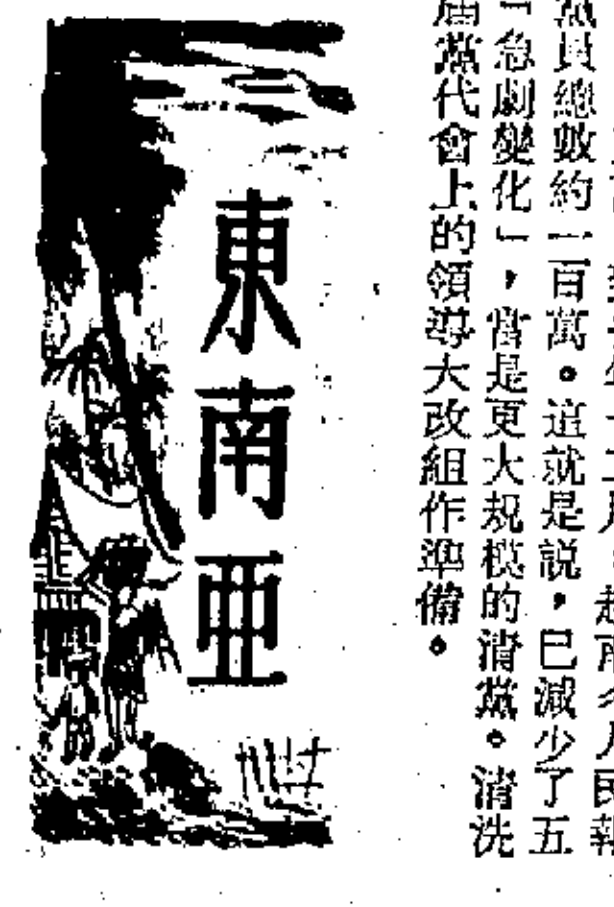 員總數約一百萬。這就是說，已減少了五
「急劇變化」，當是更大規模的清黨。清洗
屆黨代會上的領導大改組作準備。
東南亞